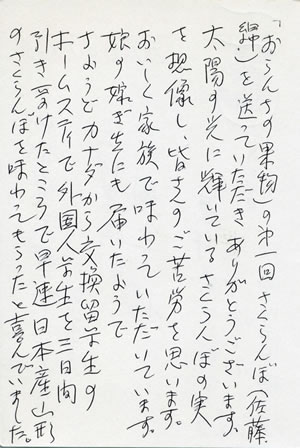 「おらんちの果物」の第一回さくらんぼ(佐藤
錦)を送っていただきありがとうございます。
太陽の光に輝いているさくらんぼの実
を想像し、皆さんのご苦労を思います。
おいしく家族で味わっていただいています。
娘の嫁ぎ先にも届いたようで
ちょうどカナダから交換留学生の
ホームスティで外国人学生を三日間
引き受けたところで早速日本産山形
のさくらんぼを味わってもらったと喜んでいました。